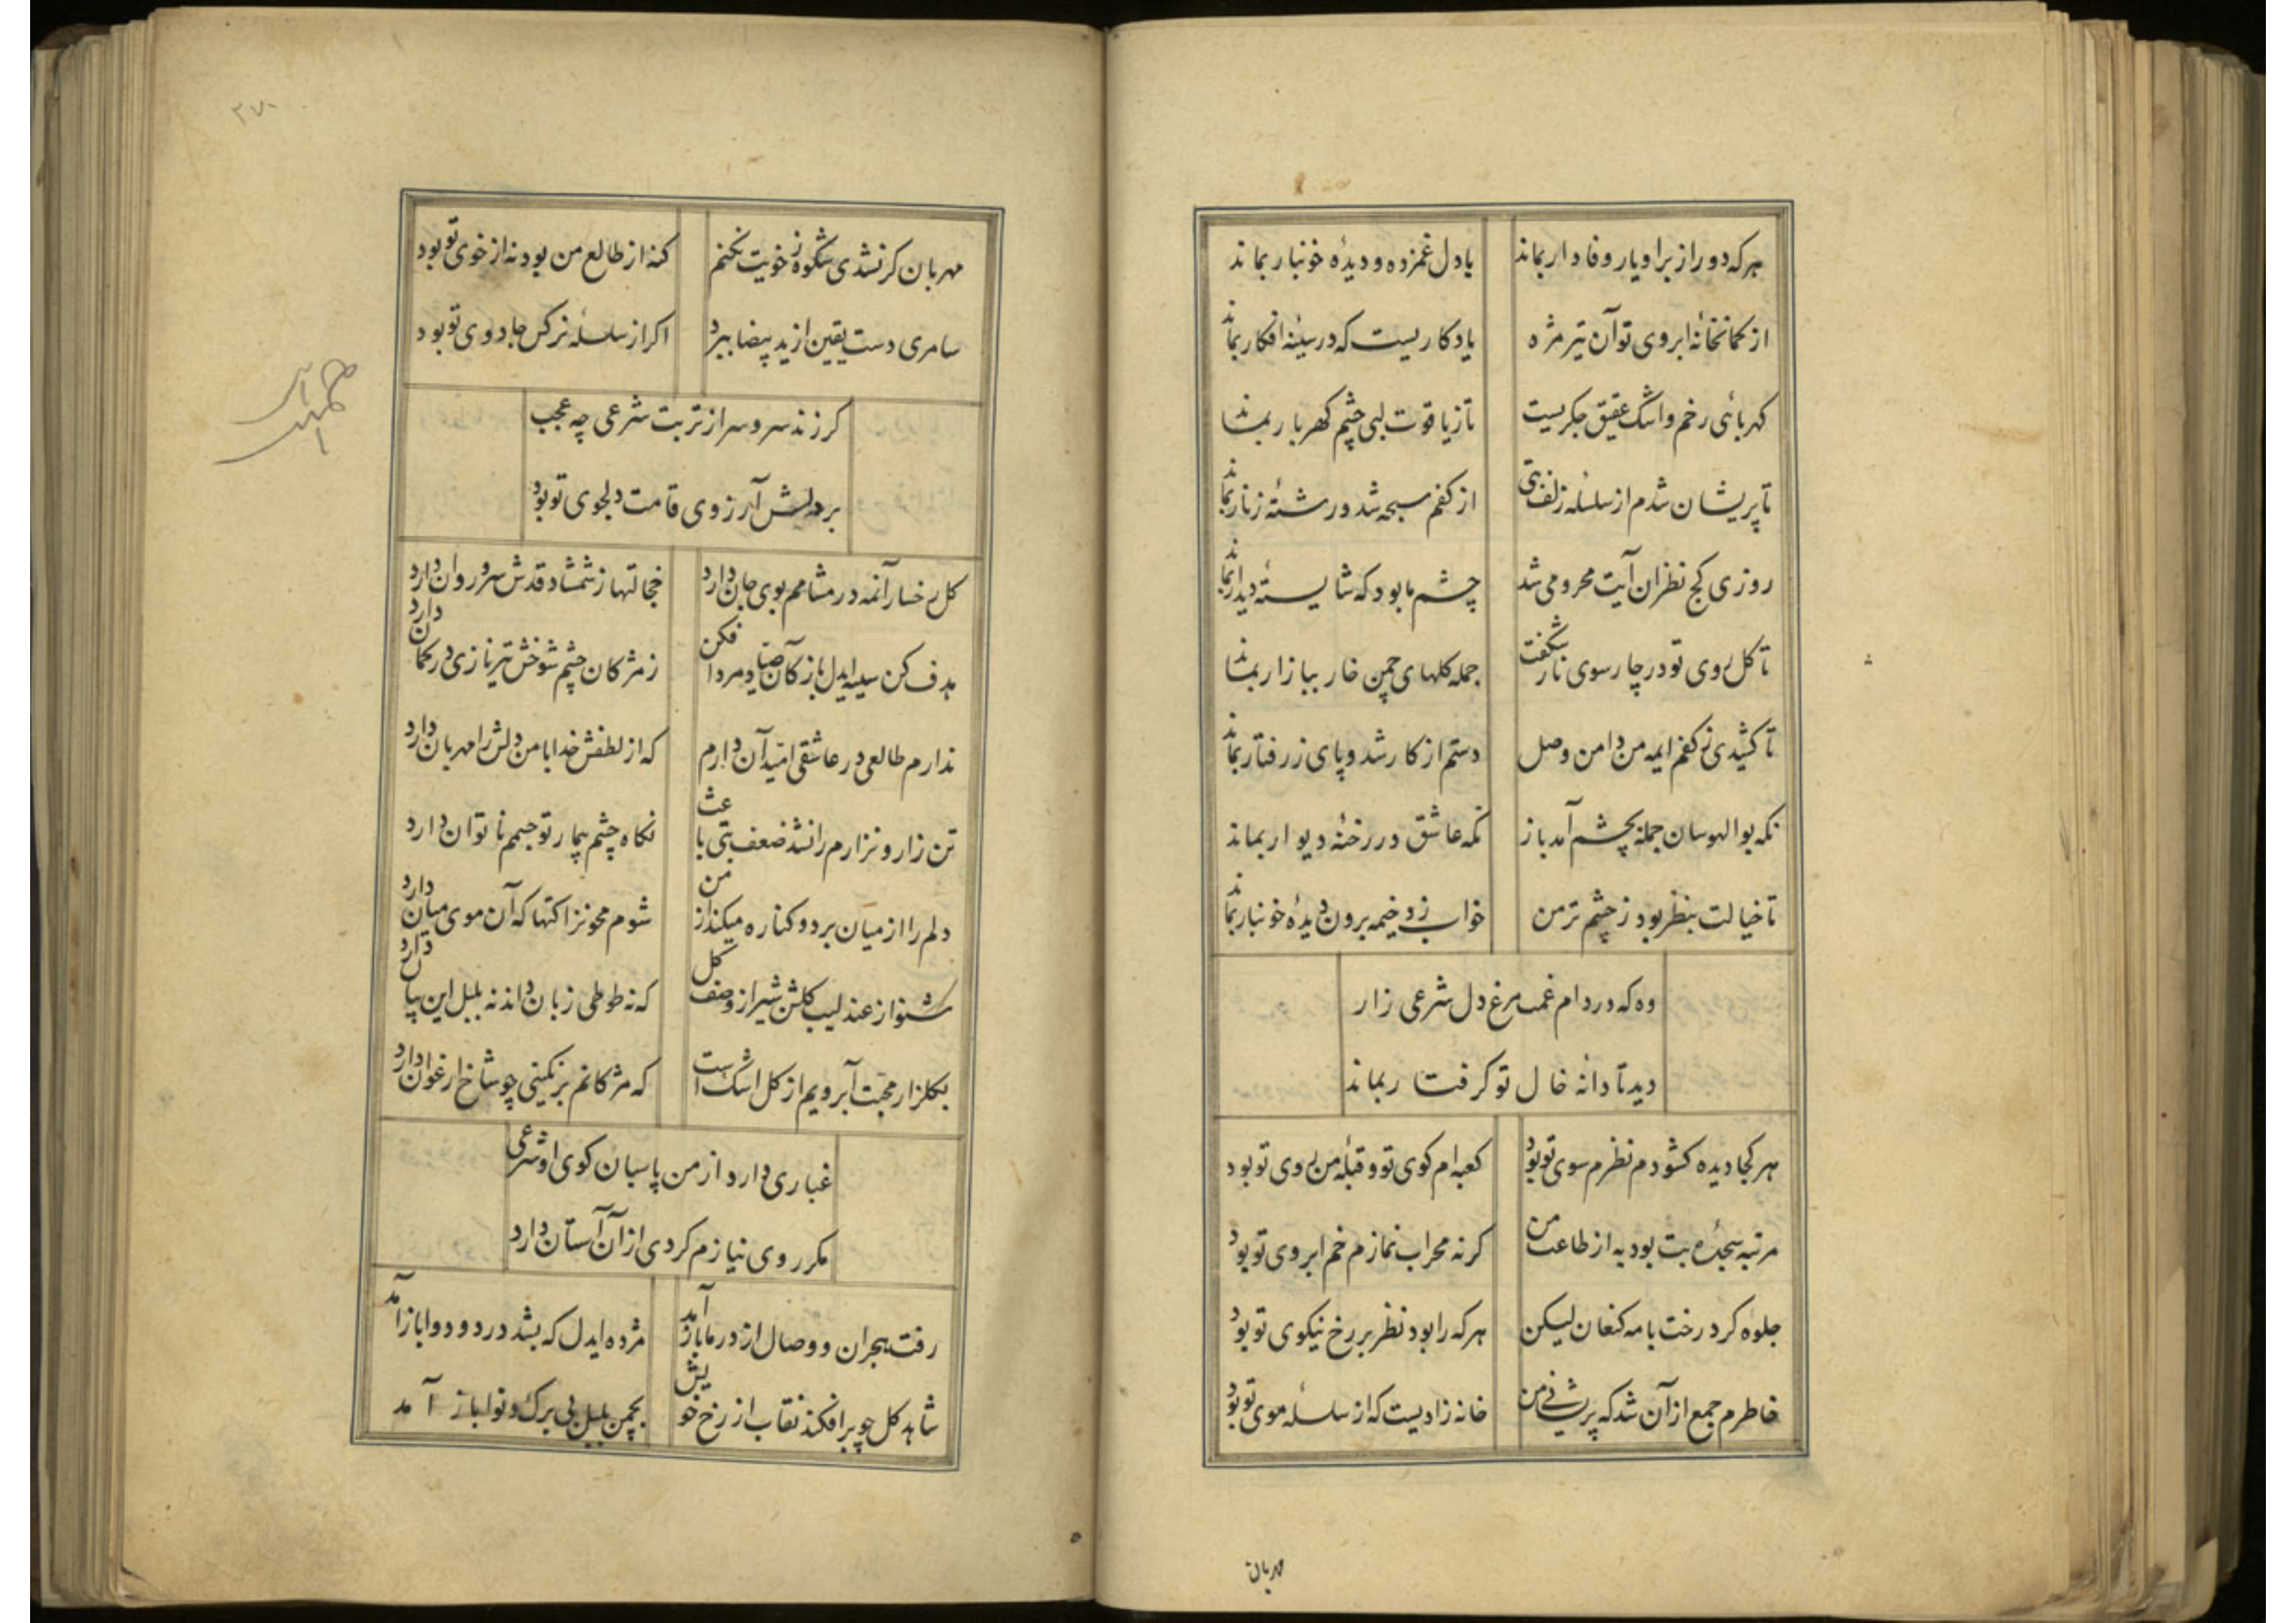 هرکه دور از بر او یار وفادار بماند
با دل غمزده و دیدهٔ خونبار بماند
از کمانخانهٔ ابروی تو آن تیر مژه
یادکاریست که در سینهٔ افکار بماند
کهربائی رخم و اشک عقیق جکریست
تا ز یاقوت لبی چشم کهربار بماند
تا پریشان شدم از سلسلهٔ زلف بتی
از کفم سبحه شد و رشتهٔ زنار بماند
روزی کج نظران آیت محرومی شد
چشم ما بود که شایستهٔ دیدار بماند
تا کل روی تو در چارسوی ناز شکفت
جمله کلهای چمن خار ببازار بماند
تا کشیدی ز کفم ایمه من دامن وصل
دستم از کار شد و پای ز رفتار بماند
نکه بوالهوسان جمله بچشم آمد باز
نکه عاشق در رخنهٔ دیوار بماند
تا خیالت بنظر بود ز چشم تر من
خواب زد خیمه برون دیدهٔ خونبار بماند
وه که در دام غمت مرغ دل شرعی زار
دید تا دانه خال تو کرفتار بماند
هر کجا دیده کشودم نظرم سوی تو بود
کعبه ام کوی تو و قبلهٔ من روی تو بود
مرتبه سجدهٔ بت بود به از طاعت من
کرنه محراب نمازم خم ابروی تو بود
جلوه کرد رخت با مه کنعان لیکن
هرکه را بود نظر بر رخ نیکوی تو بود
خاطرم جمع از آن شد که پریشانی من
خانه زادیست که از سلسلهٔ موی تو بود
مهربان
۲۷۰
مهربان کر نشدی شکوه ز خویت نکنم
کنه از طالع من بود نه از خوی تو بود
سامری دست یقین از ید بیضا ببرد
اکر از سلسلهٔ نرکس جادوی تو بود
کر زند سرو سر از تربت شرعی چه عجب
بر دلش آرزوی قامت دلجوی تو بود
کل رخسار آنمه در مشامم بوی جان دارد
خجالتها ز شمشاد قدش سرو روان دارد
هدف کن سینه ایدل باز کان صیاد مردافکن
ز مژکان چشم شوخش تیر نازی در کمان دارد
ندارم طالعی در عاشقی امید آن دارم
که از لطفش خدا با من دلش را مهربان دارد
تن زار و نزارم را نشد ضعف بتی باعث
نکاه چشم بیمار تو جسم ناتوان دارد
دلم را از میان برد و کناره میکند از من
شوم محو نزاکتها که آن موی میان دارد
شنو از عندلیب کلشن شیراز وصف کل
که نه طوطی زبان داند نه بلبل این بیان دارد
بکلزار محبت آبرویم از کل اشک است
که مژکانم برنکینی چو شاخ ارغوان دارد
غباری دارد از من پاسبان کوی او شرعی
مکر روی نیازم کردی از آن آستان دارد
رفت هجران و وصال از در ما باز آمد
مژده ایدل که بشد درد و دوا باز آمد
شاهد کل چو برافکند نقاب از رخ خویش
بچمن بلبل بی برک و نوا باز آمد